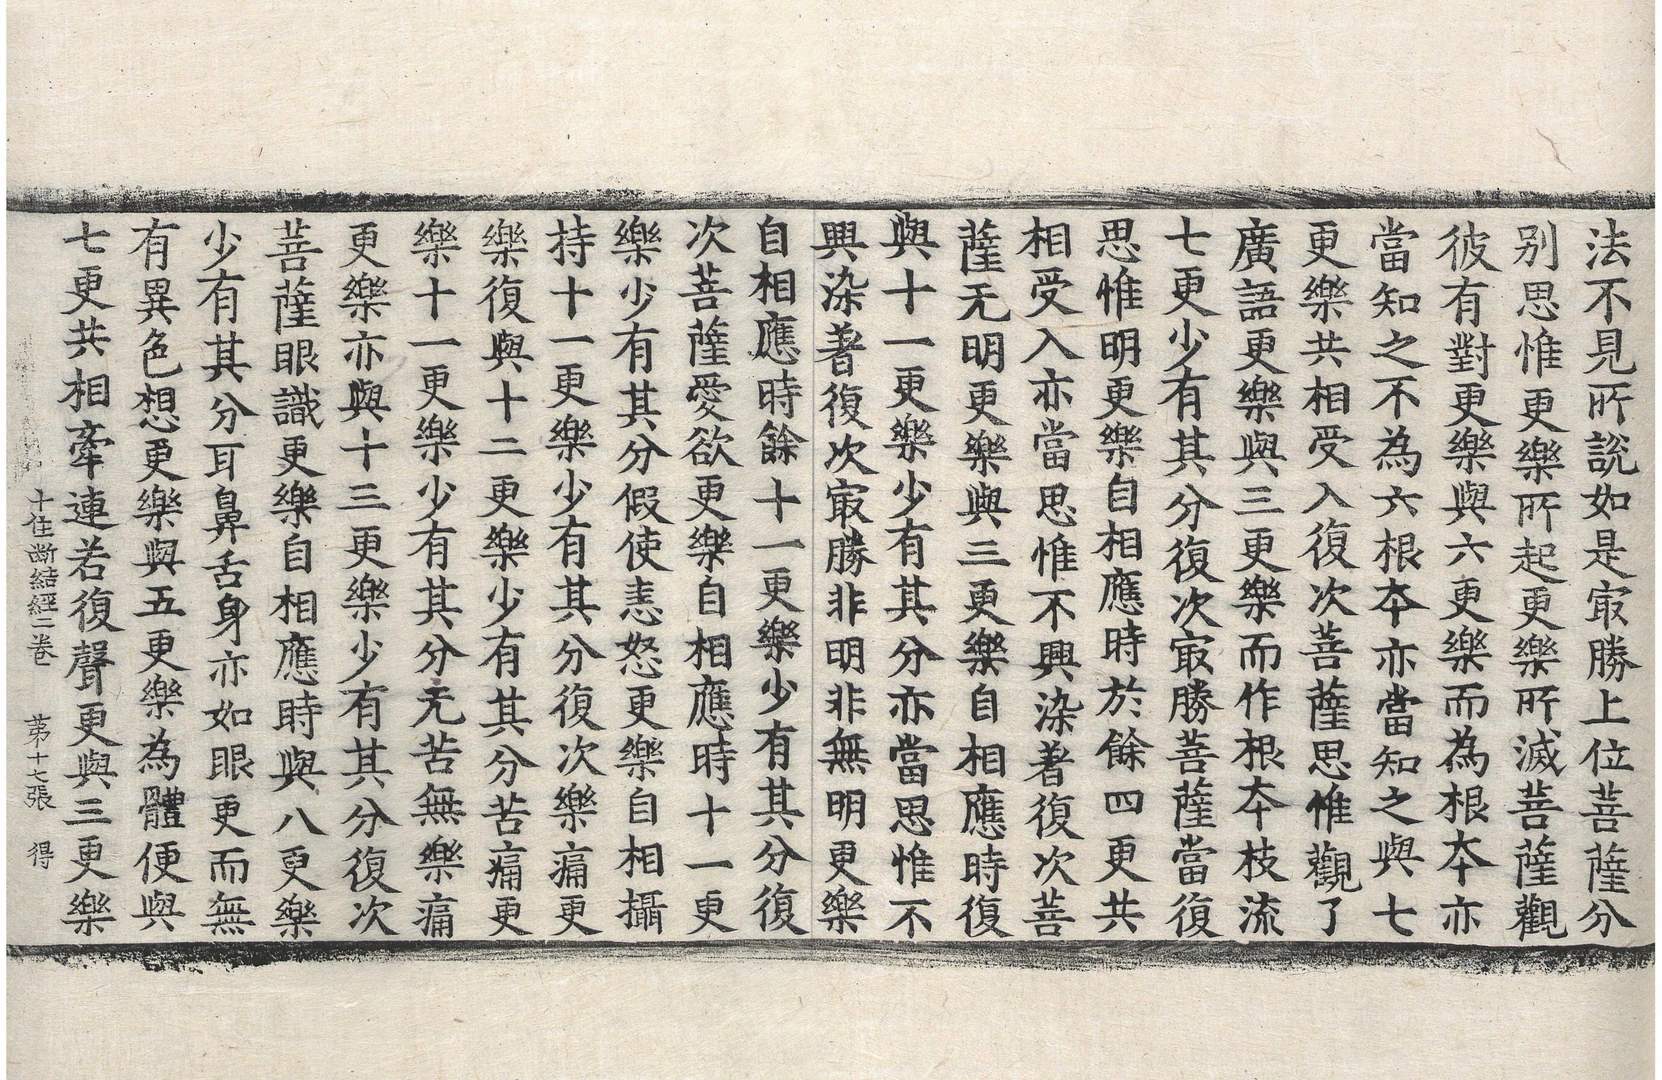 法不見所說如是㝡勝上位菩薩分
別思惟更樂所起更樂所滅菩薩觀
彼有對更樂與六更樂而為根夲亦
當知之不為六根夲亦當知之與七
更樂共相受入復次菩薩思惟觀了
廣語更樂與三更樂而作根夲枝流
七更少有其分復次㝡勝菩薩當復
思惟明更樂自相應時於餘四更共
相受入亦當思惟不興染著復次菩
薩无明更樂與三更樂自相應時復
與十一更樂少有其分亦當思惟不
興染著復次㝡勝非明非無明更樂
自相應時餘十一更樂少有其分復
次菩薩愛欲更樂自相應時十一更
樂少有其分假使恚怒更樂自相攝
持十一更樂少有其分復次樂痛更
樂復與十二更樂少有其分苦痛更
樂十一更樂少有其分无苦無樂痛
更樂亦與十三更樂少有其分復次
菩薩眼識更樂自相應時與八更樂
少有其分耳鼻舌身亦如眼更而無
有異色想更樂與五更樂為體便與
七更共相牽連若復聲更與三更樂
十住断結經二卷 苐十七張 得